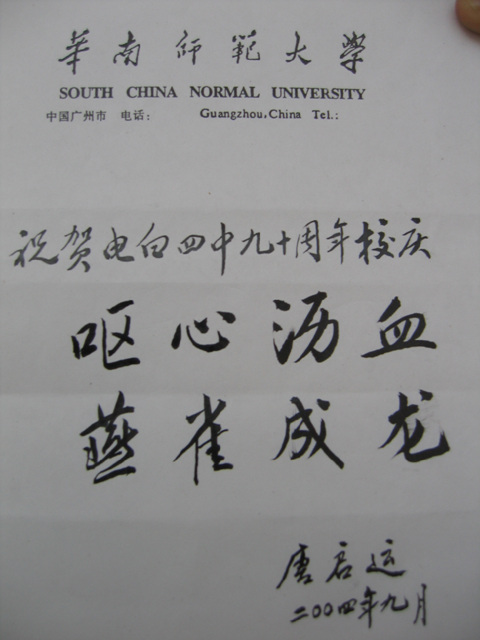 華南师範大學
SOUTH CHINA NORMAL UNIVERSITY
中国广州市 电话: Guangzhou,China Tel.:
祝贺电白四中九十周年校庆
呕心沥血
燕雀成龙
唐启运
二〇〇四年九月